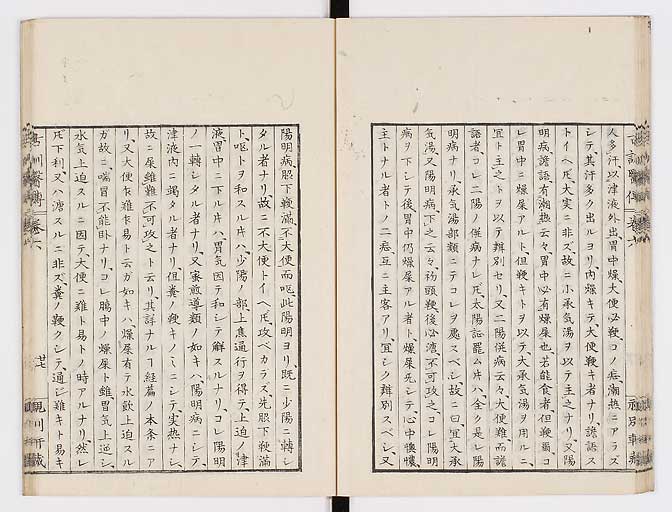 人多汗以津液外出胃中燥大便必鞕コノ症潮熱ニアラズ
シテ其汗多ク出ルヨリ内燥キテ大便鞕キ者ナリ譫語ス
トイヘ𪜈大実ニ非ズ故ニ小承気湯ヲ以テ主之ナリ又陽
明病譫語有潮熱云々胃中必有燥屎也若能食者但鞕爾コ
レ胃中ニ燥屎アルト但鞕キトヲ以テ大承気湯ヲ用ルニ
宜ト主之トヲ以テ辨別セリ又二陽併病云々大便難而譫
語者コレ二陽ノ併病ナレ𪜈太陽証罷ム片ハ全ク是レ陽
明病ナリ承気湯部類ニテコレヲ處スベシ故ニ曰宜大承
気湯又陽明病下之云々初頭鞕後必溏不可攻之コレ陽明
病ヲ下シテ後胃中仍燥屎アル者ト燥屎先シテ心中懊憹
主トナル者トノ二症互ニ主客アリ宜シク辨別スベシ又
陽明病脇下鞕満不大便而嘔此陽明ヨリ既ニ少陽ニ轉シ
タル者ナリ故ニ不大便トイヘ𪜈攻ベカラス先脇下鞕満
ト嘔トヲ和スル片ハ少陽ノ部上焦通行ヲ得テ上迫ノ津
液胃中ニ下ル片ハ胃気因テ和シテ解スルナリコレ陽明
ノ一轉シタル者ナリ又蜜煎導類ノ如キハ陽明病ニシテ
津液内ニ竭タル者ナリ但糞ノ鞕キノミニシテ実熱ナシ
故ニ屎雖難不可攻之ト云リ其詳ナルヿ経篇ノ本条ニア
リ又大便乍難乍易ト云カ如キハ燥屎有テ水飲上迫スル
ガ故ニ喘冒不能卧ナリコレ腸中ノ燥屎ト雖胃気上逆シ
水気上迫スルニ因テ大便ニ難ト易トノ時アルナリ然レ
𪜈下利又ハ溏スルニ非ズ糞ノ鞕クシテ通シ難キト易キ
廿七